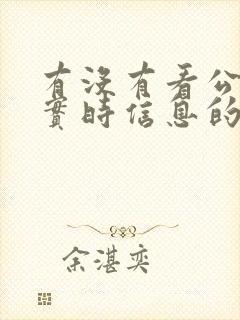 有没有看公
實時信息的
余湛奕